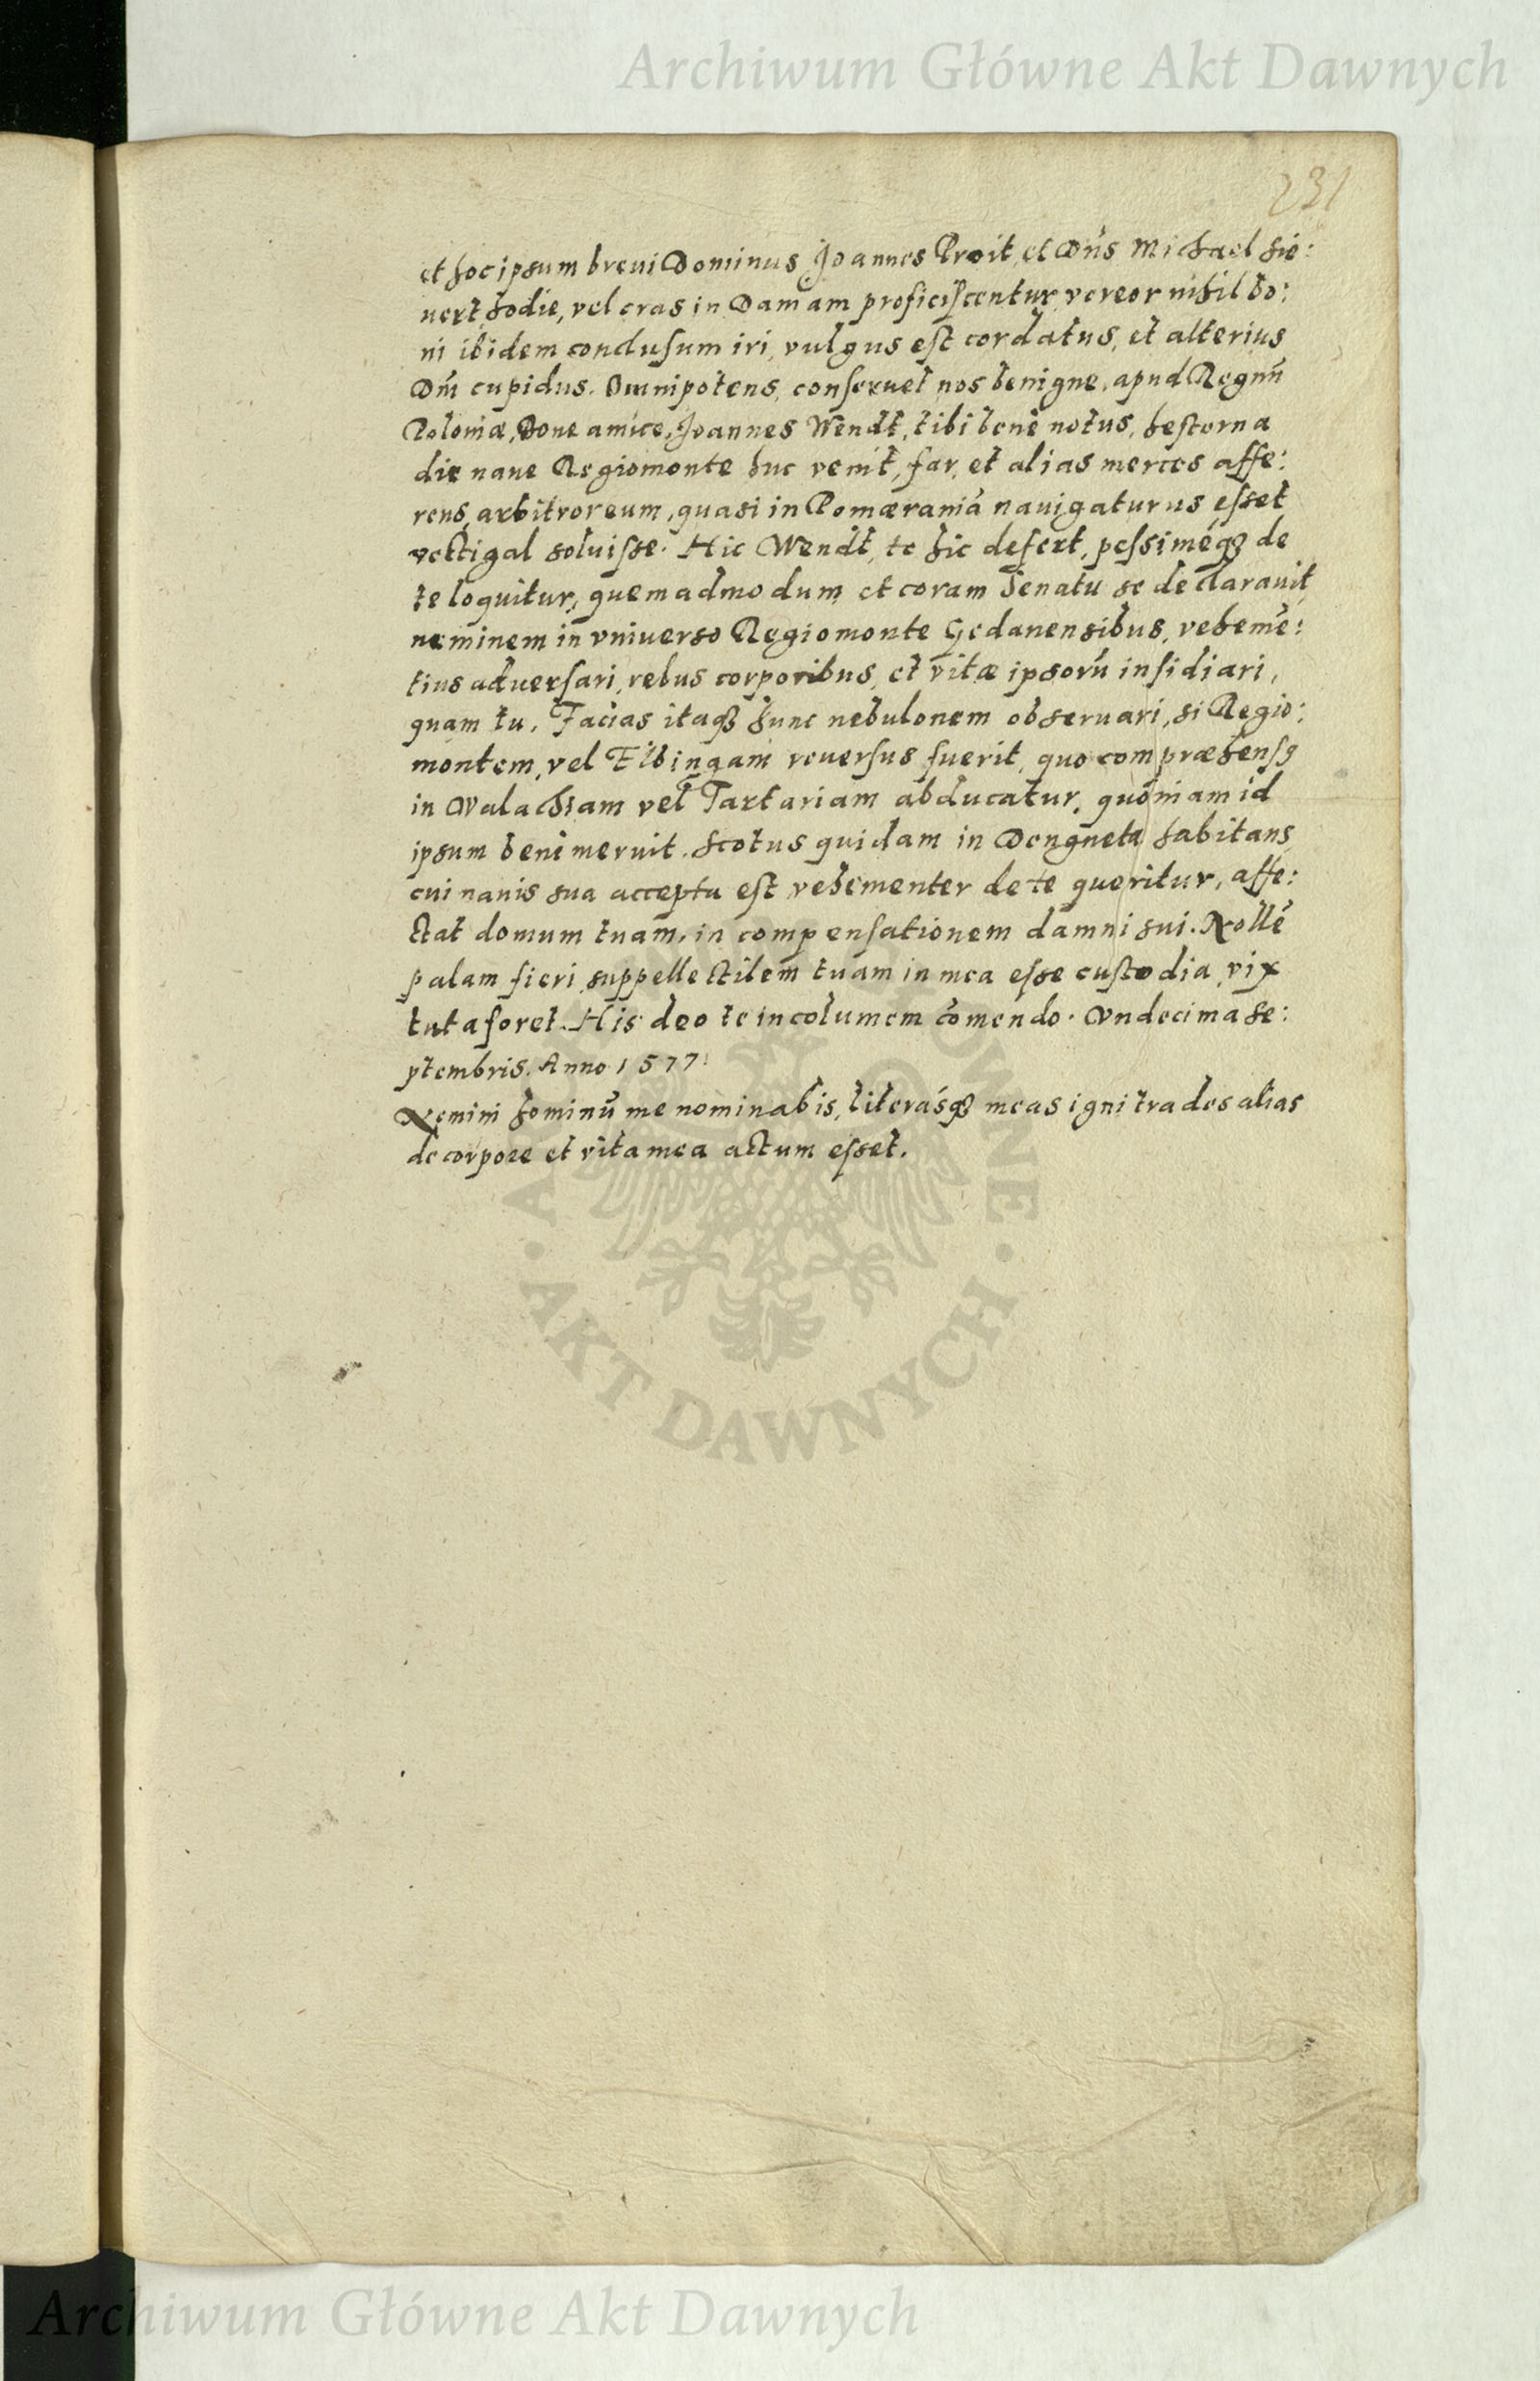 Archiwum Główne Akt Dawnych
231
et hoc ipsum breui Dominus Joannes Proit, et Dn̄s Michael Sie:
uert, hodie, vel cras in Damam proficiscentur, vereor nihil bo:
ni ibidem conclusum iri, vulgus est cordatus, et alterius
Dn̄i cupidus. Omnipotens, conseruet nos benigne, apud Regnū
Poloniæ, Bone amice, Joannes Wendt, tibi bene notus, hesterna
die naue Regiomonte huc venit, far, et alias merces affe:
rens, arbitror eum, quasi in Pomæraniā nauigaturus esset
vectigal soluisse. Hic Wendt, te hic defert, pessiméqȝ de
te loquitur, quemadmodum et coram Senatu se declarauit,
neminem in vniuerso Regiomonte Gedanensibus, vehemē:
tius aduersari, rebus corporibus, et vitæ ipsorū insidiari,
quam tu. Facias itaqȝ hunc nebulonem obseruari, si Regio:
montem, vel Elbingam reuersus fuerit, quo compræhensȝ
in Walachiam vel Tartariam abducatur, quoniam id
ipsum bene meruit. Scotus quidam in Dengneta habitans,
cui nauis sua accepta est vehementer de te queritur, affe:
ctat domum tuam, in compensationem damni sui. Nollē
palam fieri suppellectilem tuam in mea esse custodia, vix
tuta foret. His deo te incolumem cōmendo. Vndecima Se:
ptembris. Anno 1577.
Nemini hominū me nominabis, literásqȝ meas igni trades alias
de corpore et vita mea actum esset.
A · AKT DAWNYCH · WNE
Archiwum Główne Akt Dawnych